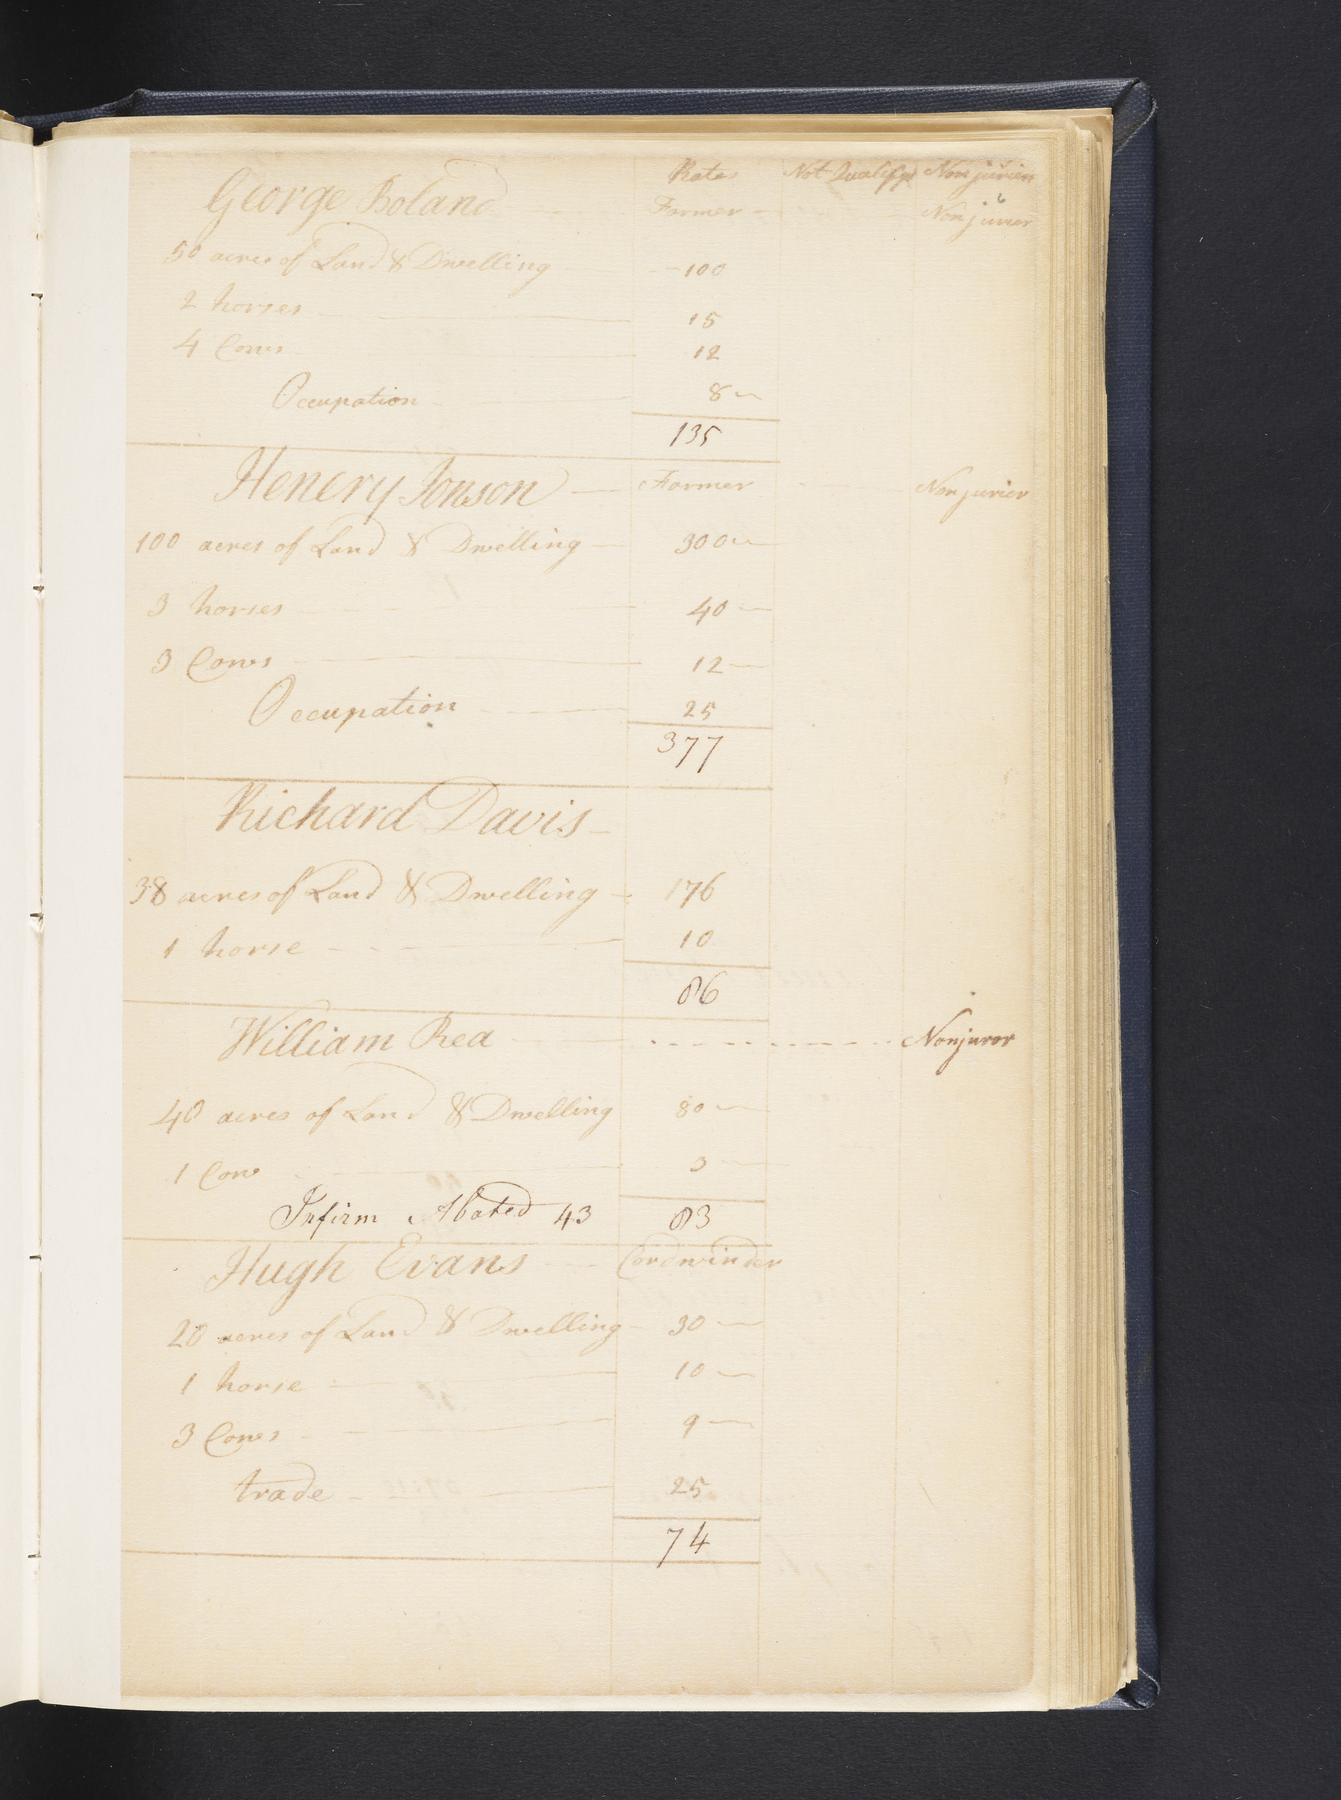 Rates Not Qualifyd Nonjurien
George Boland Farmer Nonjurier
50 acres of Land & Dwelling 100
2 horses 15
4 Cows 12
Occupation 8
135
Henery Jonson Farmer Nonjurier
100 acres of Land & Dwelling 300
3 horses 40
3 Cows 12
Occupation 25
377
Richard Davis
38 acres of Land & Dwelling 176
1 horse 10
86
William Rea Nonjuror
40 acres of Land & Dwelling 80
1 Cow 3
Infirm Abated 43 83
Hugh Evans Cordwinder
20 acres of Land & Dwelling 30
1 horse 10
3 Cows 9
trade 25
74